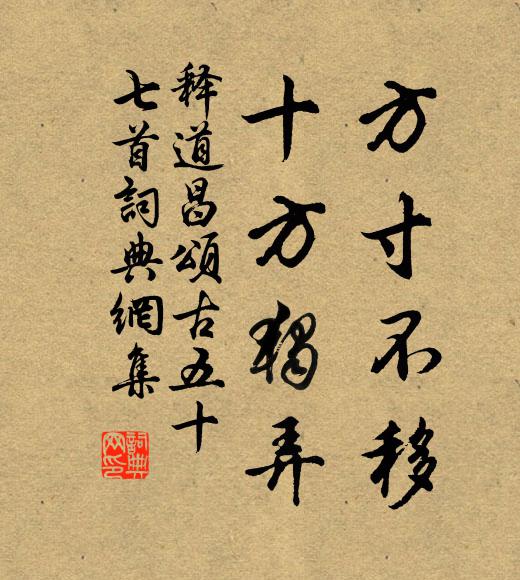 方寸不移
十方独弄
释道昌頌古五十
七首詞典網集
詞典網印